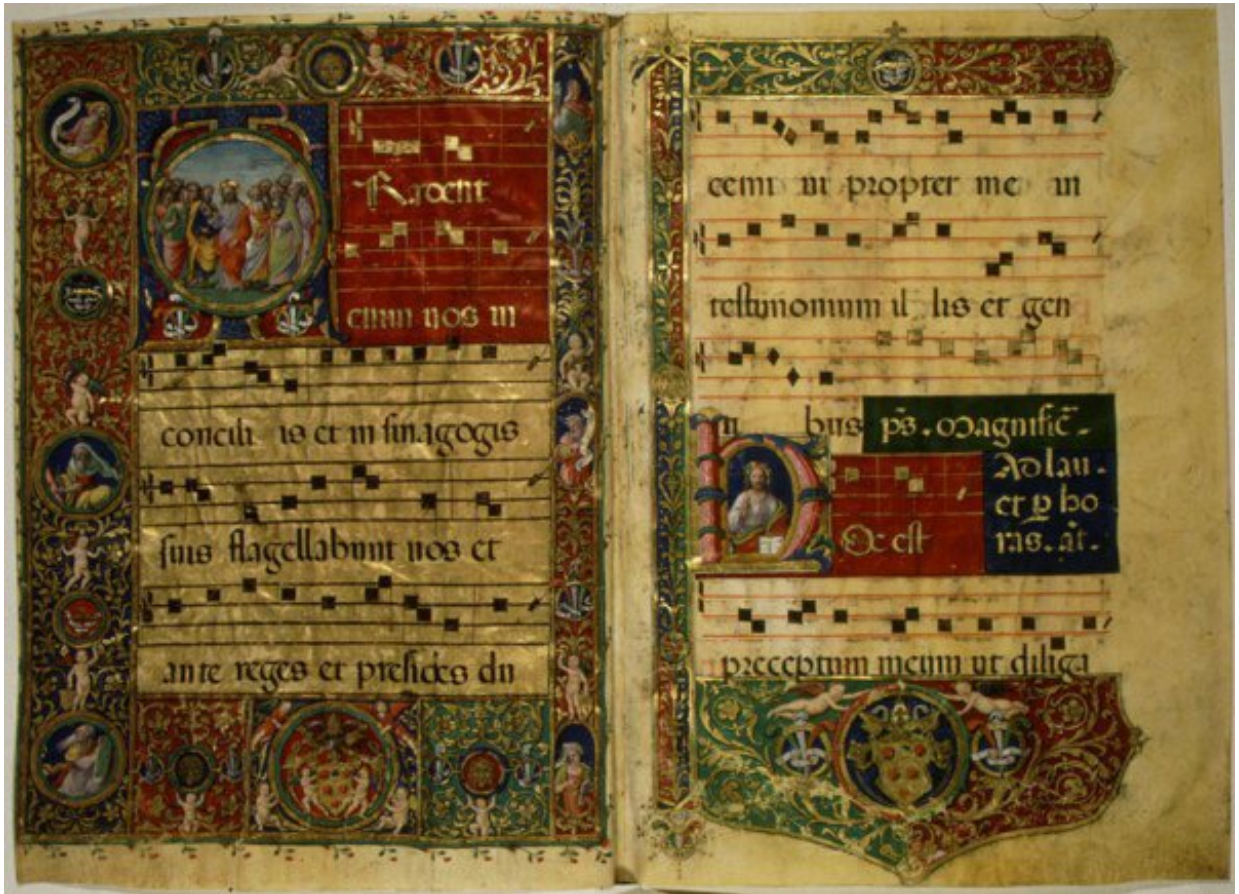 TRadent
enim vos in
concili is et in sinagogis
suis flagellabunt vos et
ante reges et presides du
cemi ni propter me in
testimonium il lis et gen
ti bus p̄s. Magnific̄.
Ad lau.
et ꝑ ho
ras. añ.
HOc est
preceptum meum ut diliga